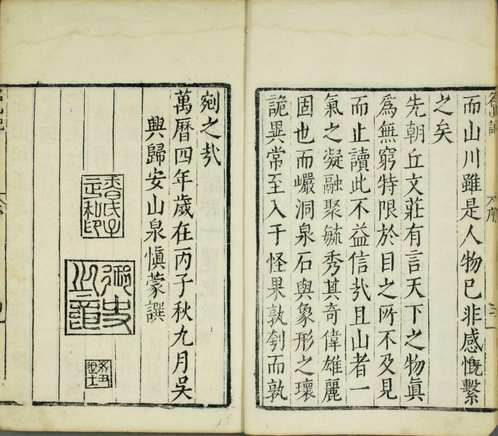 而山川雖是人物已非感慨繫
之矣
先朝丘文莊有言天下之物真
爲無窮特限於目之所不及見
而止讀此不益信哉且山者一
氣之凝融聚毓秀其奇偉雄麗
固也而巖洞泉石與象形之瓌
詭異常至入于怪果孰刳而孰
剜之哉
萬曆四年歲在丙子秋九月吳
興歸安山泉慎蒙譔